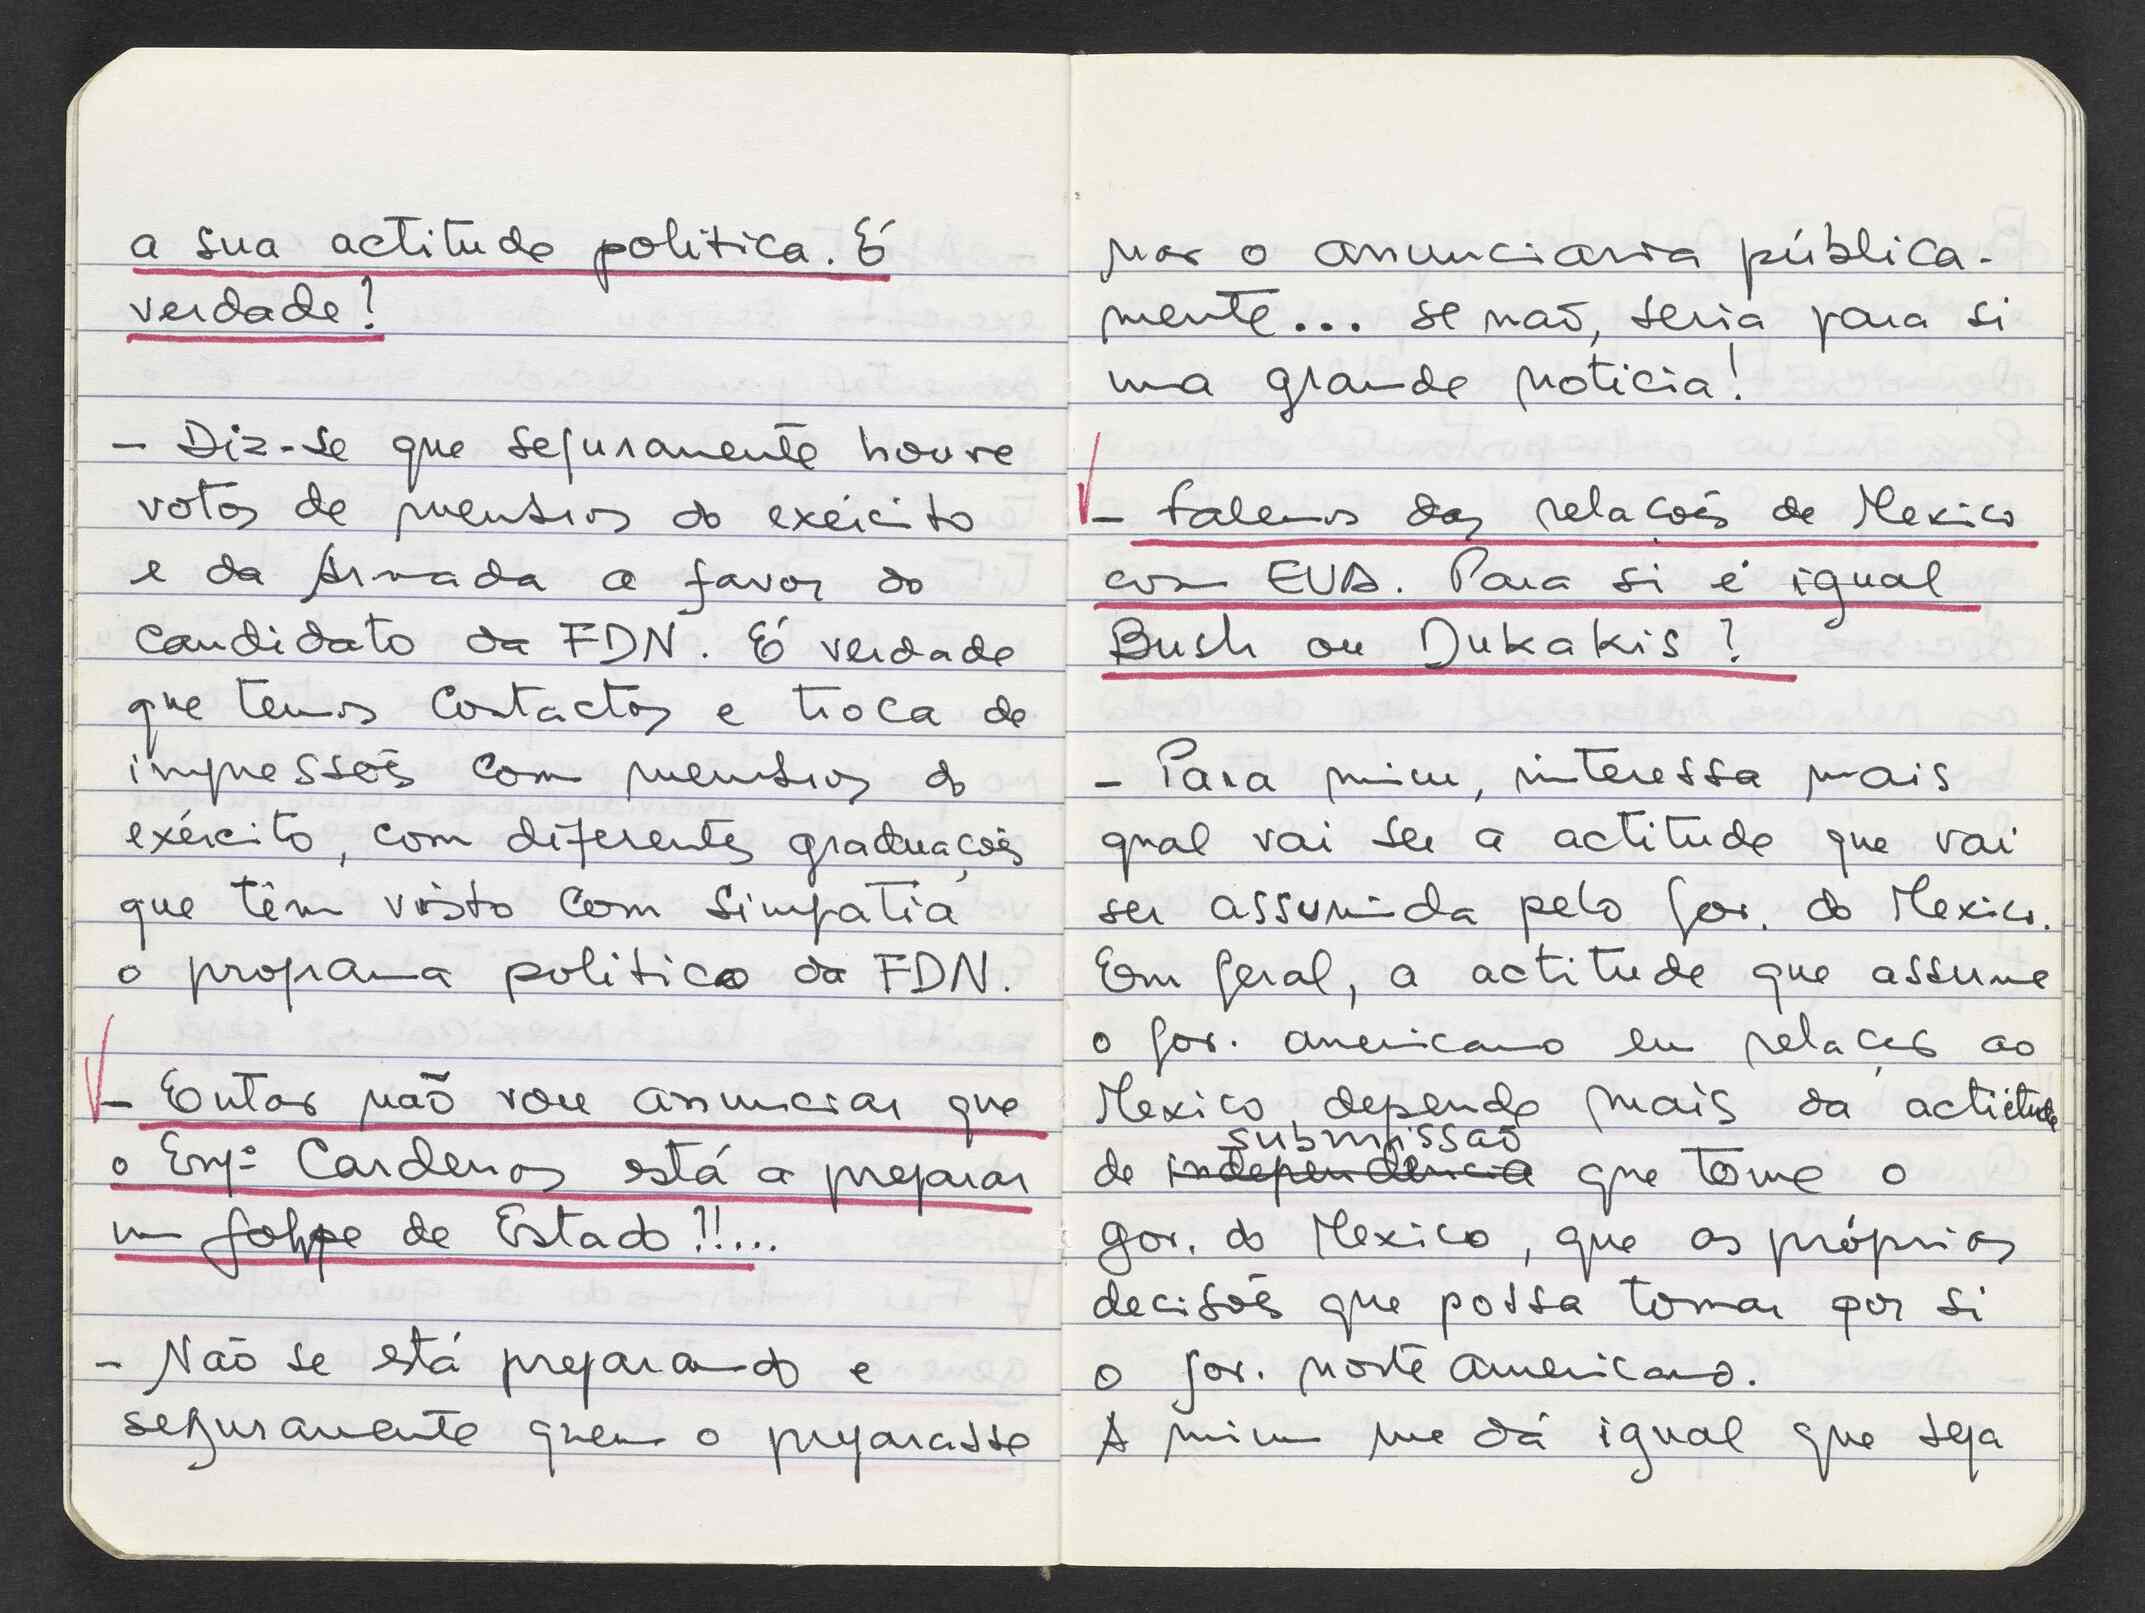 a sua actitude politica. É
verdade?
- Diz-se que seguramente houve
votos de membros do exército
e da Armada a favor do
candidato da FDN. É verdade
que temos contactos e troca de
impressões com membros do
exército, com diferentes graduações
que têm visto com simpatia
o programa politico da FDN.
- Entao não vou anunciar que
o Engº Cardenas está a preparar
um golpe de Estado?!!...
- Não se está preparando e
seguramente quem o preparasse
nao o anunciaria pública-
mente... se nao, seria para si
uma grande noticia!
- Falemos das relações de Mexico
com EUA. Para si é igual
Bush ou Dukakis?
- Para mim, interessa mais
qual vai ser a actitude que vai
ser assumida pelo gov. do Mexico.
Em geral, a actitude que assume
o gov. americano em relações ao
Mexico depende mais da actictude
submissão
de independência que tome o
gov. do Mexico, que as próprias
decisões que possa tomar por si
o gov. norte americano.
A mim me dá igual que seja